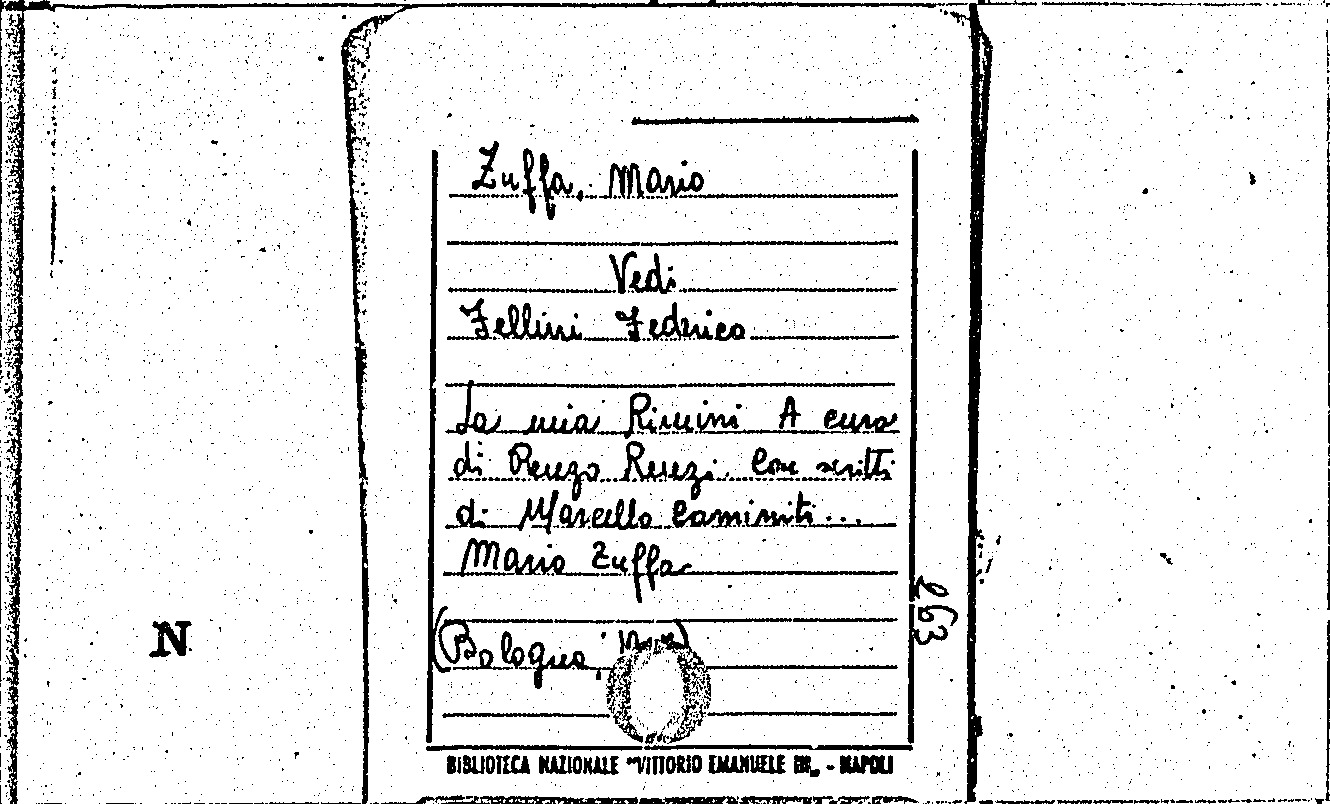 Zuffa, Mario
Vedi
Fellini Federico
La mia Rimini A cura
di Renzo Renzi. Con scritti
di Marcello Caminiti...
Mario Zuffa
(Bologna,
263
N
BIBLIOTECA NAZIONALE "VITTORIO EMANUELE III" - NAPOLI